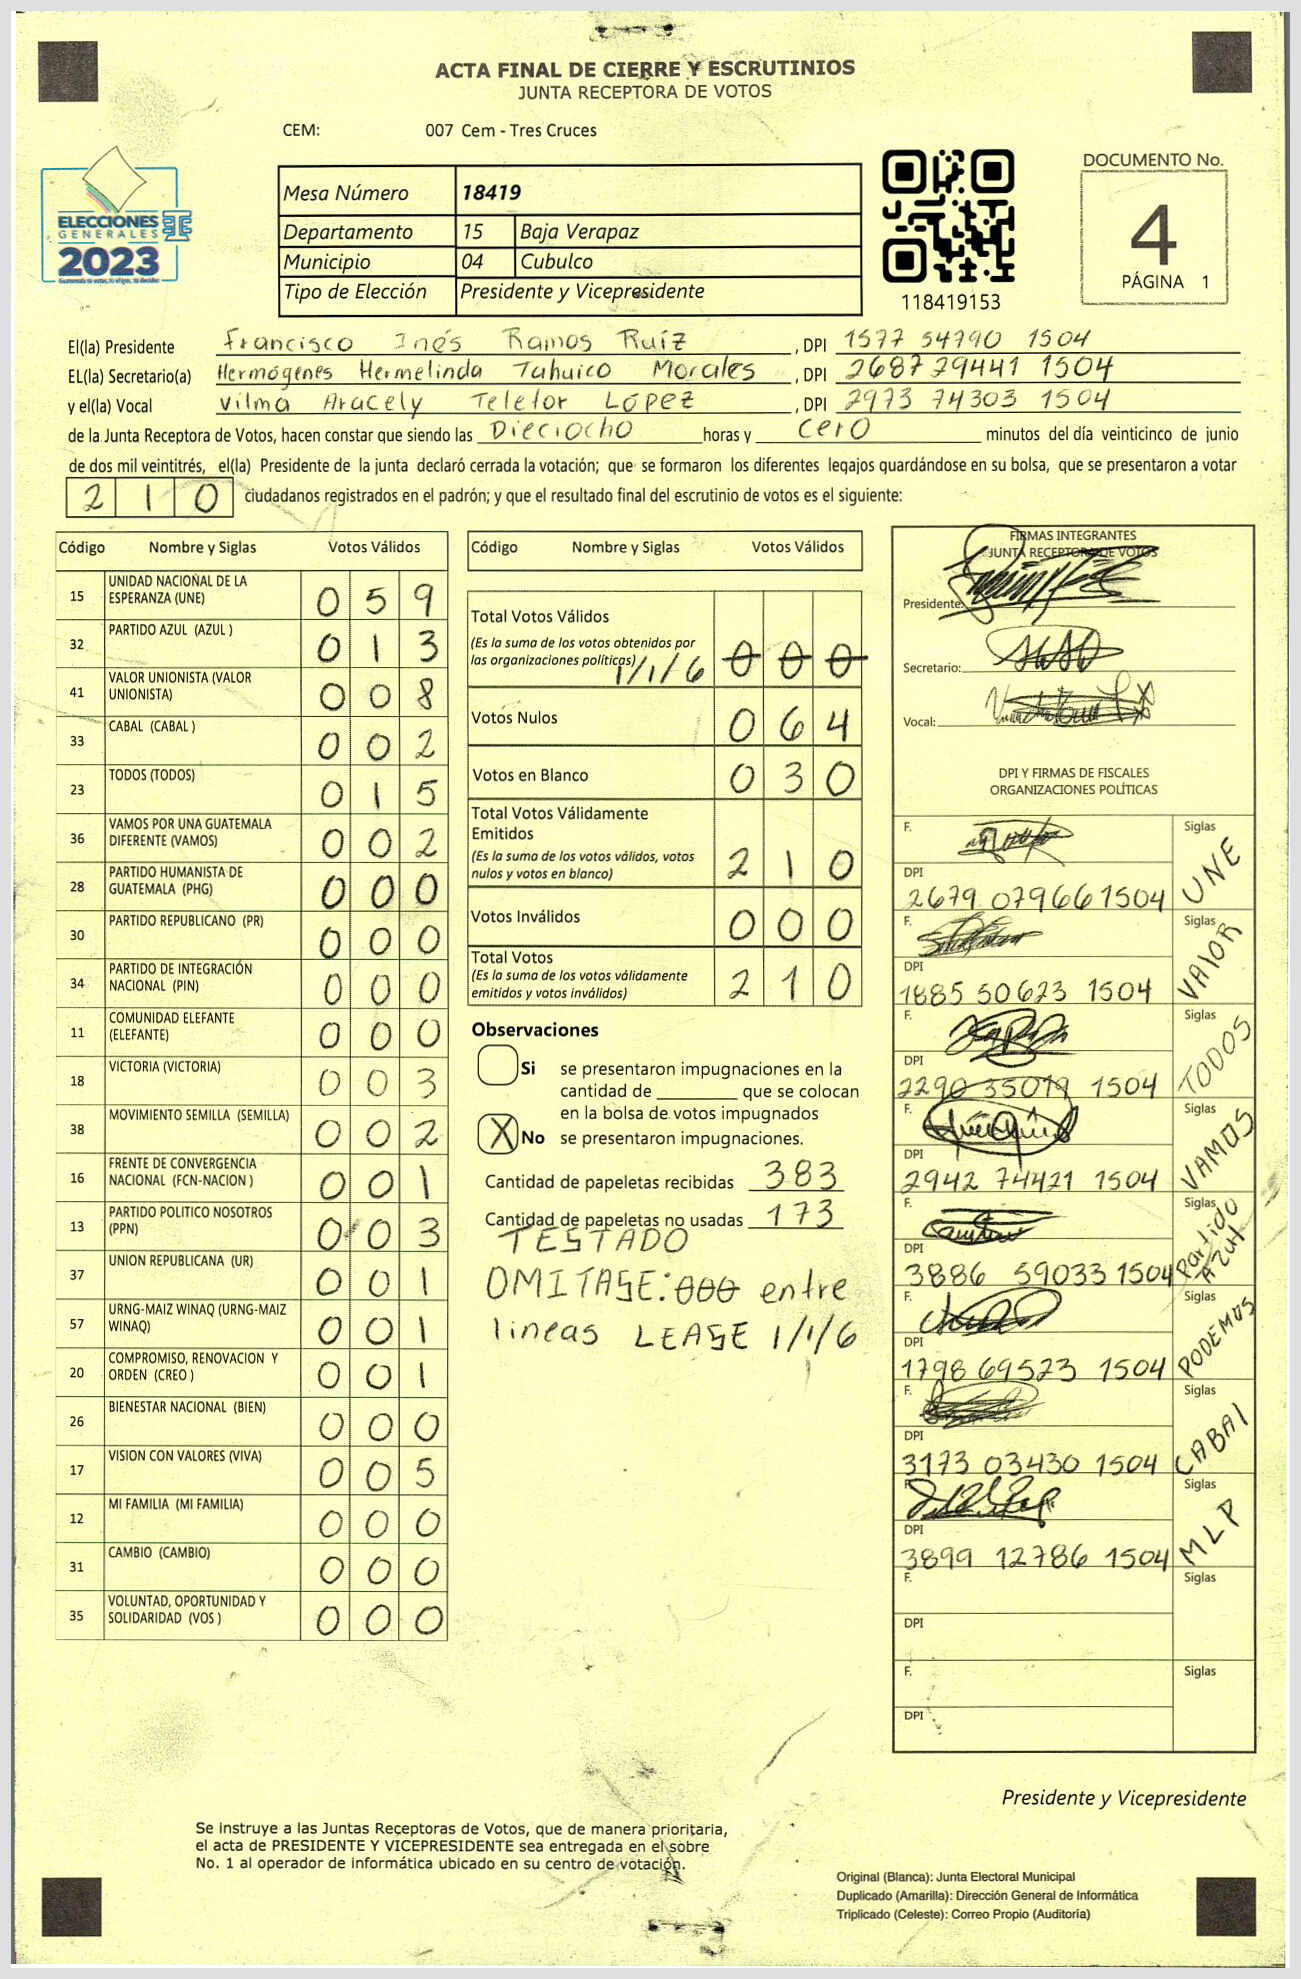 ACTA FINAL DE CIERRE Y ESCRUTINIOS
JUNTA RECEPTORA DE VOTOS
CEM: 007 Cem - Tres Cruces
ELECCIONES
GENERALES
2023
Mesa Número 18419
Departamento 15 Baja Verapaz
Municipio 04 Cubulco
Tipo de Elección Presidente y Vicepresidente
118419153
DOCUMENTO No.
4
PÁGINA 1
El(la) Presidente Francisco Inés Ramos Ruíz , DPI 1577 54790 1504
EL(la) Secretario(a) Hermógenes Hermelinda Tahuico Morales , DPI 2687 29441 1504
y el(la) Vocal Vilma Aracely Teletor López , DPI 2973 74303 1504
de la Junta Receptora de Votos, hacen constar que siendo las Dieciocho horas y cero minutos del día veinticinco de junio
de dos mil veintitrés, el(la) Presidente de la junta declaró cerrada la votación; que se formaron los diferentes legajos guardándose en su bolsa, que se presentaron a votar
2 1 0 ciudadanos registrados en el padrón; y que el resultado final del escrutinio de votos es el siguiente:
Código Nombre y Siglas Votos Válidos
15 UNIDAD NACIONAL DE LA ESPERANZA (UNE) 0 5 9
32 PARTIDO AZUL (AZUL ) 0 1 3
41 VALOR UNIONISTA (VALOR UNIONISTA) 0 0 8
33 CABAL (CABAL ) 0 0 2
23 TODOS (TODOS) 0 1 5
36 VAMOS POR UNA GUATEMALA DIFERENTE (VAMOS) 0 0 2
28 PARTIDO HUMANISTA DE GUATEMALA (PHG) 0 0 0
30 PARTIDO REPUBLICANO (PR) 0 0 0
34 PARTIDO DE INTEGRACIÓN NACIONAL (PIN) 0 0 0
11 COMUNIDAD ELEFANTE (ELEFANTE) 0 0 0
18 VICTORIA (VICTORIA) 0 0 3
38 MOVIMIENTO SEMILLA (SEMILLA) 0 0 2
16 FRENTE DE CONVERGENCIA NACIONAL (FCN-NACION ) 0 0 1
13 PARTIDO POLITICO NOSOTROS (PPN) 0 0 3
37 UNION REPUBLICANA (UR) 0 0 1
57 URNG-MAIZ WINAQ (URNG-MAIZ WINAQ) 0 0 1
20 COMPROMISO, RENOVACION Y ORDEN (CREO ) 0 0 1
26 BIENESTAR NACIONAL (BIEN) 0 0 0
17 VISION CON VALORES (VIVA) 0 0 5
12 MI FAMILIA (MI FAMILIA) 0 0 0
31 CAMBIO (CAMBIO) 0 0 0
35 VOLUNTAD, OPORTUNIDAD Y SOLIDARIDAD (VOS ) 0 0 0
Código Nombre y Siglas Votos Válidos
Total Votos Válidos
(Es la suma de los votos obtenidos por
las organizaciones políticas) 1/1/6 0 0 0
Votos Nulos 0 6 4
Votos en Blanco 0 3 0
Total Votos Válidamente
Emitidos
(Es la suma de los votos válidos, votos
nulos y votos en blanco) 2 1 0
Votos Inválidos 0 0 0
Total Votos
(Es la suma de los votos válidamente
emitidos y votos inválidos) 2 1 0
Observaciones
Si se presentaron impugnaciones en la
cantidad de ________ que se colocan
en la bolsa de votos impugnados
X No se presentaron impugnaciones.
Cantidad de papeletas recibidas 383
Cantidad de papeletas no usadas 173
TESTADO
OMITASE: 000 entre
lineas LEASE 1/1/6
FIRMAS INTEGRANTES
JUNTA RECEPTORA DE VOTOS
Presidente:
Secretario:
Vocal:
DPI Y FIRMAS DE FISCALES
ORGANIZACIONES POLÍTICAS
F. Siglas UNE
DPI 2679 07966 1504
F. Siglas VAlOR
DPI 1885 50623 1504
F. Siglas TODOS
DPI 2290 35079 1504
F. Siglas VAMOS
DPI 2942 74421 1504
F. Siglas Partido Azul
DPI 3886 59033 1504
F. Siglas PODEMOS
DPI 1798 69523 1504
F. Siglas CABAl
DPI 3173 03430 1504
F. Siglas MLP
DPI 3899 12786 1504
F. Siglas
DPI
F. Siglas
DPI
Presidente y Vicepresidente
Se instruye a las Juntas Receptoras de Votos, que de manera prioritaria,
el acta de PRESIDENTE Y VICEPRESIDENTE sea entregada en el sobre
No. 1 al operador de informática ubicado en su centro de votación.
Original (Blanca): Junta Electoral Municipal
Duplicado (Amarilla): Dirección General de Informática
Triplicado (Celeste): Correo Propio (Auditoría)